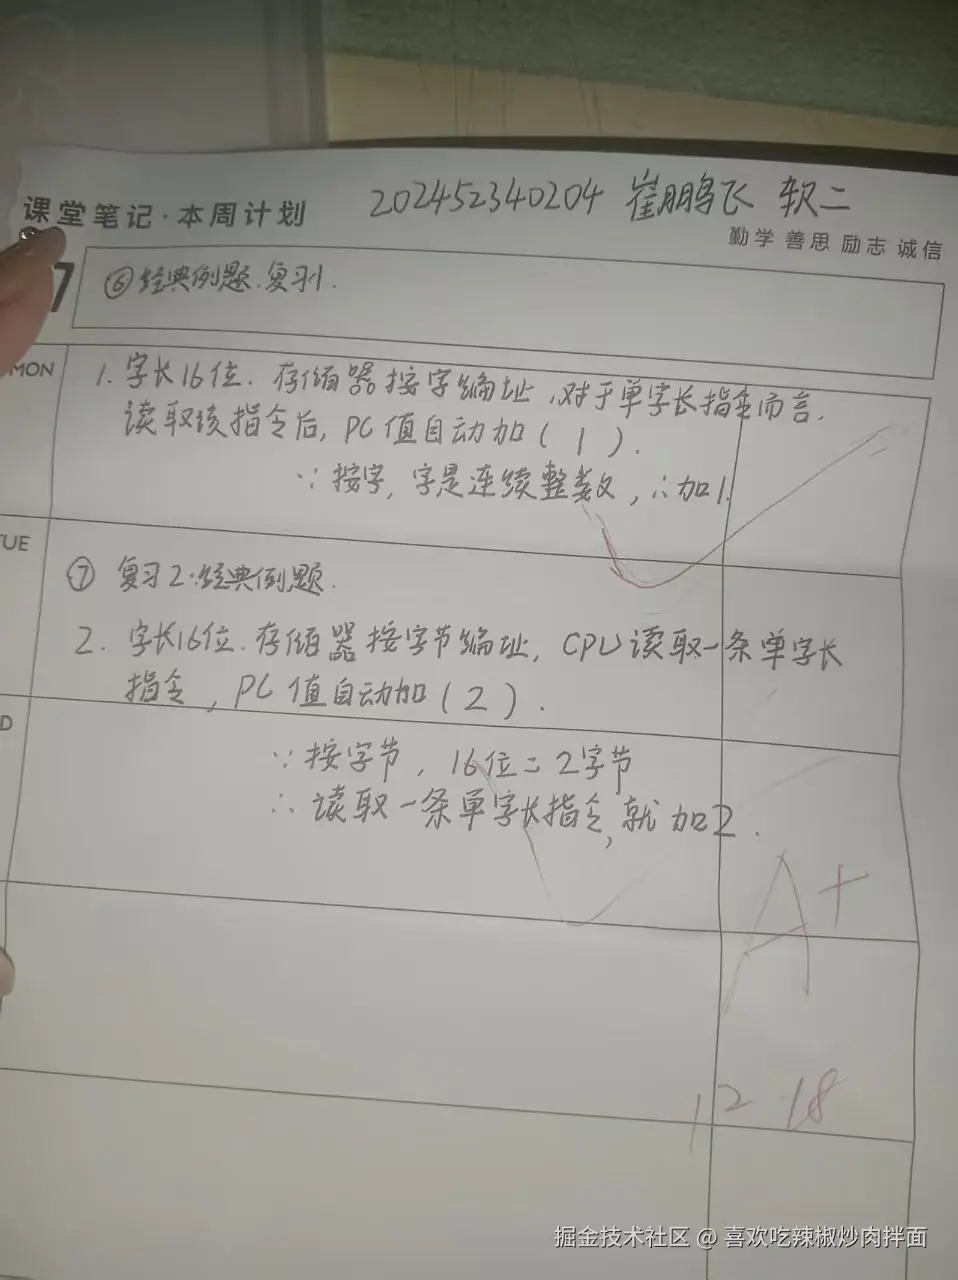 课堂笔记·本周计划
202452340204 崔鹏飞 软二
勤学 善思 励志 诚信
7
⑥经典例题.复习1.
MON
1. 字长16位.存储器按字编址,对于单字长指令而言.
读取该指令后, PC值自动加(1).
∵按字,字是连续整数,∴加1.
TUE
⑦ 复习2:经典例题.
2. 字长16位.存储器按字节编址, CPU读取一条单字长
指令, PC值自动加(2).
D
∵按字节, 16位=2字节
∴读取一条单字长指令,就加2.
A+
12 18
掘金技术社区 @ 喜欢吃辣椒炒肉拌面